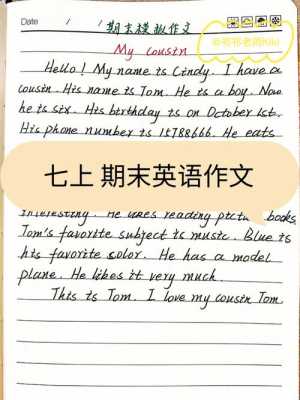 Date / /
期末模拟作文
My cousin
Hello! My name is Cindy. I have a
cousin. His name is Tom. He is a boy. Now
he is six. His birthday is on October 1st.
His phone number is 15788666. He eats
七上 期末英语作文
interesting. He likes reading picture books
Tom's favorite subject is music. Blue is
his favorite color. He has a model
plane. He likes it very much.
This is Tom. I love my cousin Tom.